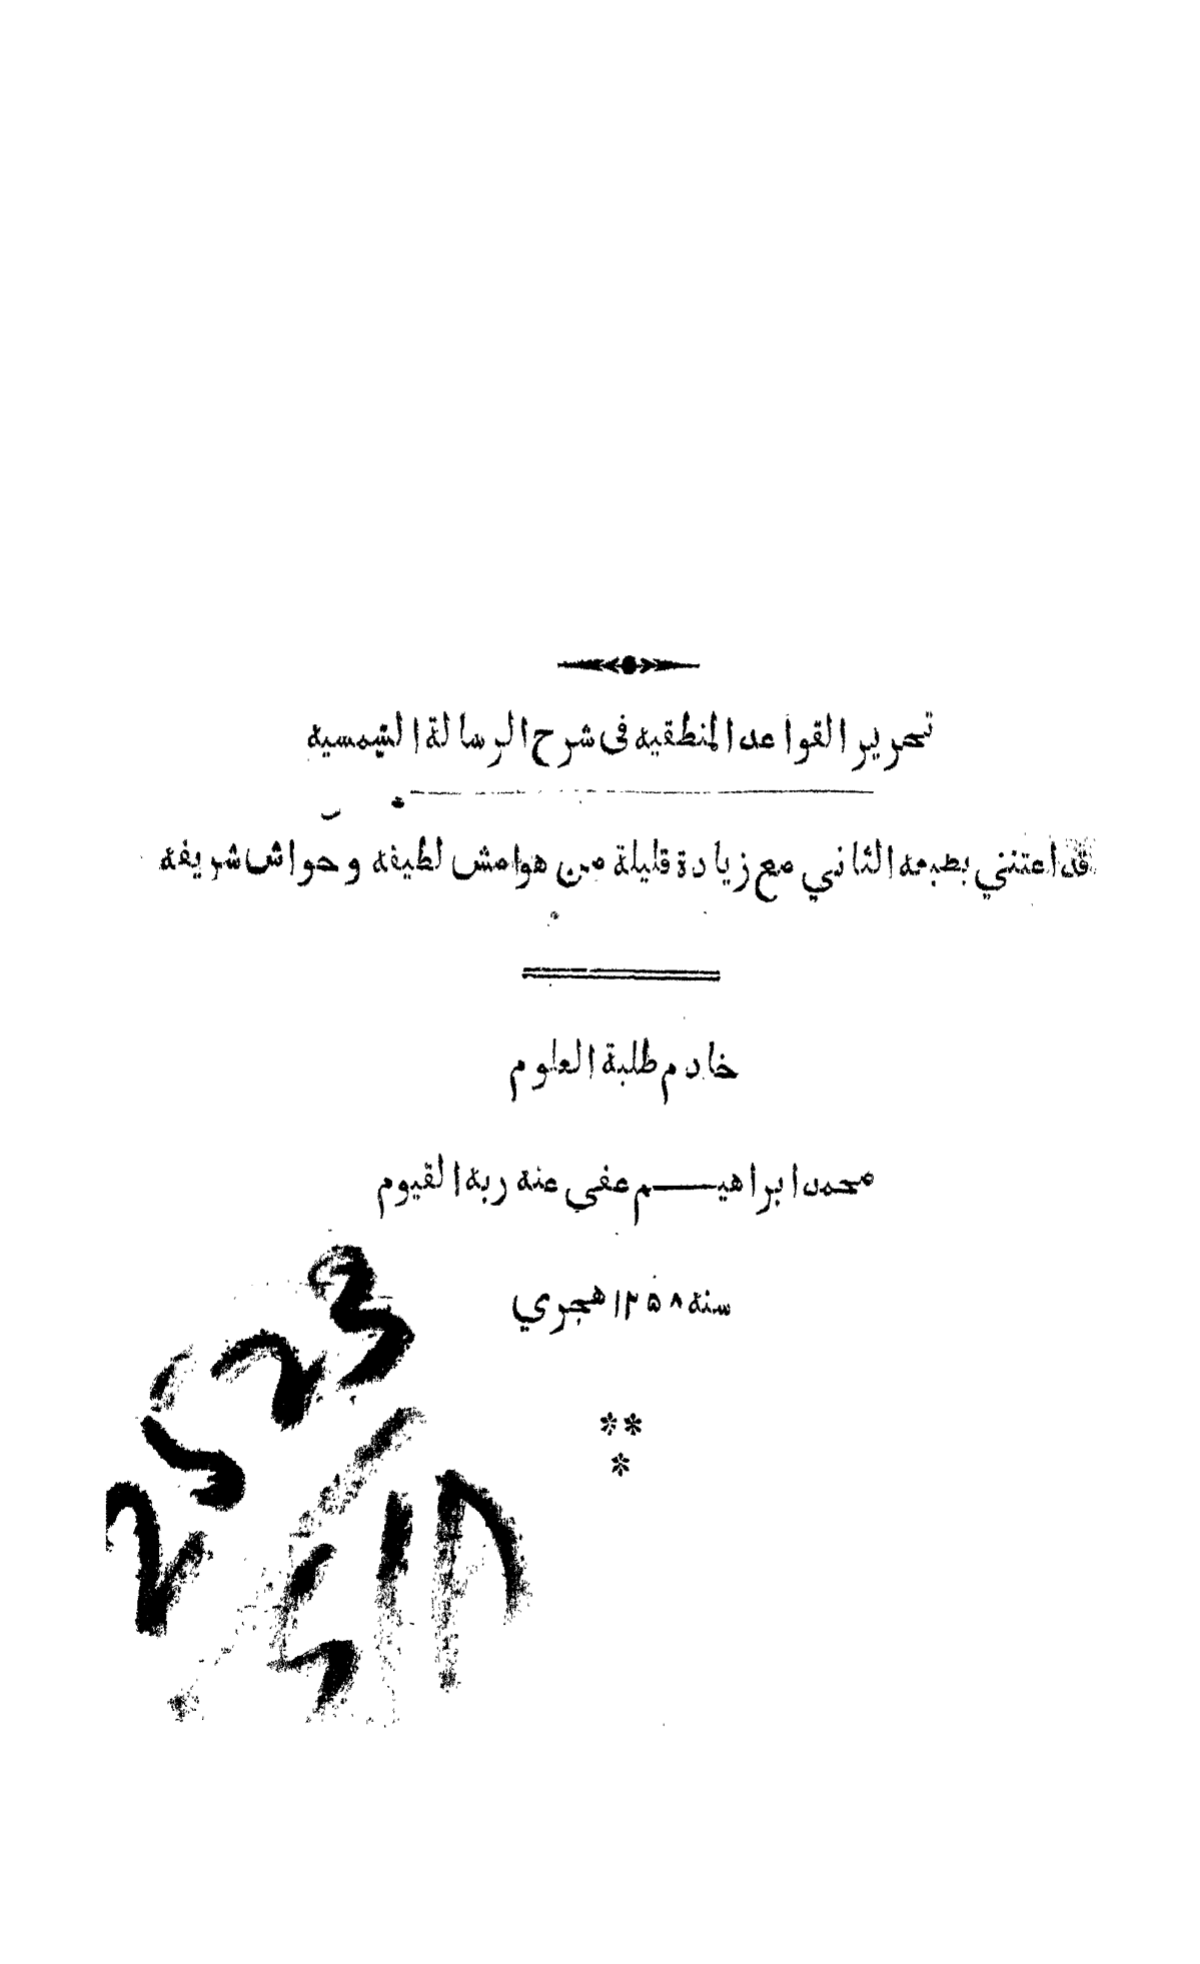 تحرير القواعد المنطقيه فى شرح الرسالة الشمسيه
قد اعتنني بطبعه الثاني مع زيادة قليلة من هوامش لطيفه و حواش شريفه
خادم طلبة العلوم
محمد ابراهيـــم عفي عنه ربه القيوم
سنه ۱۲۵۸ هجري